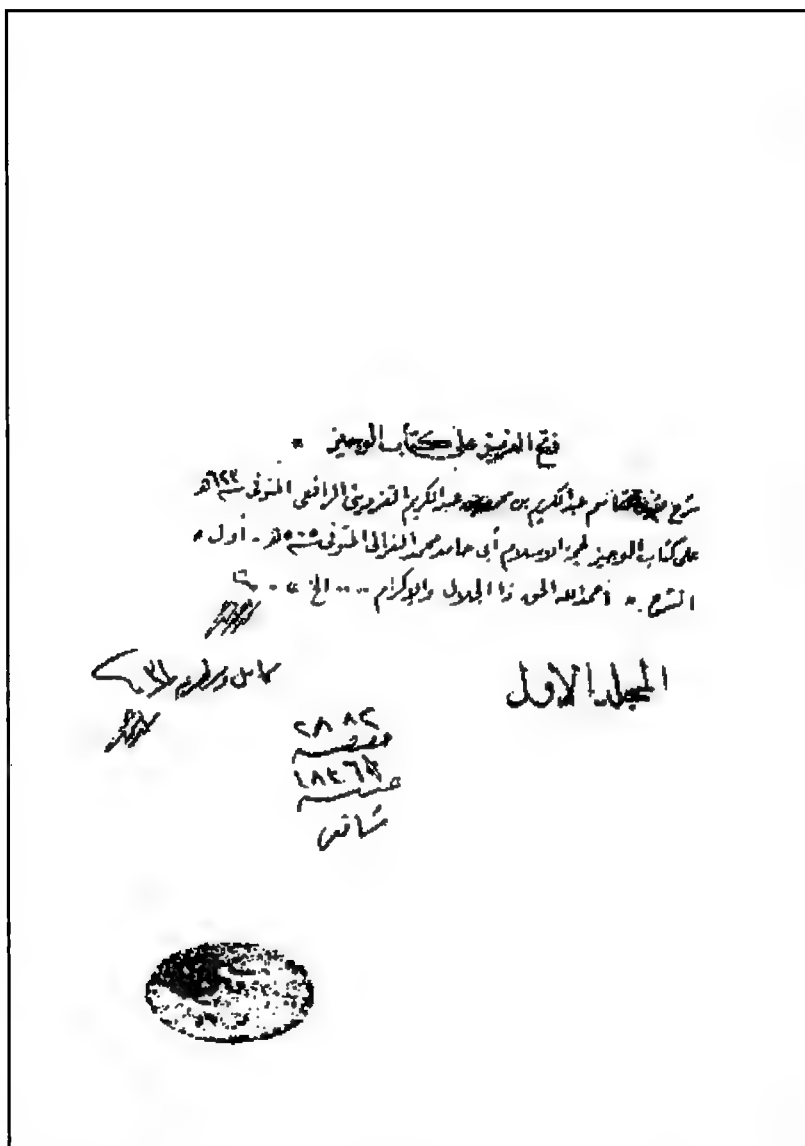 فتح العزيز على كتاب الوجيز *
شرح عبدالكريم بن محمد بن عبدالكريم القزوينى الرافعى المتوفى سنة ٦٢٣هـ
على كتاب الوجيز لحجة الاسلام أبى حامد محمد الغزالى المتوفى سنة ٥٠٥هـ - أول *
الشرح * أحمد الله الحق ذا الجلال والإكرام .... الخ
المجلد الاول
٢٨٨٢
شافعى